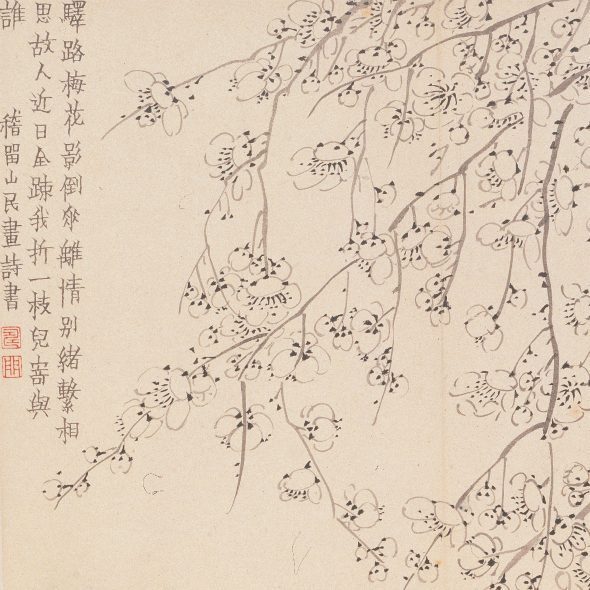 驛路梅花影倒垂離情别緒繫相
思故人近日全疎我折一枝兒寄與
誰
稽留山民畫詩書